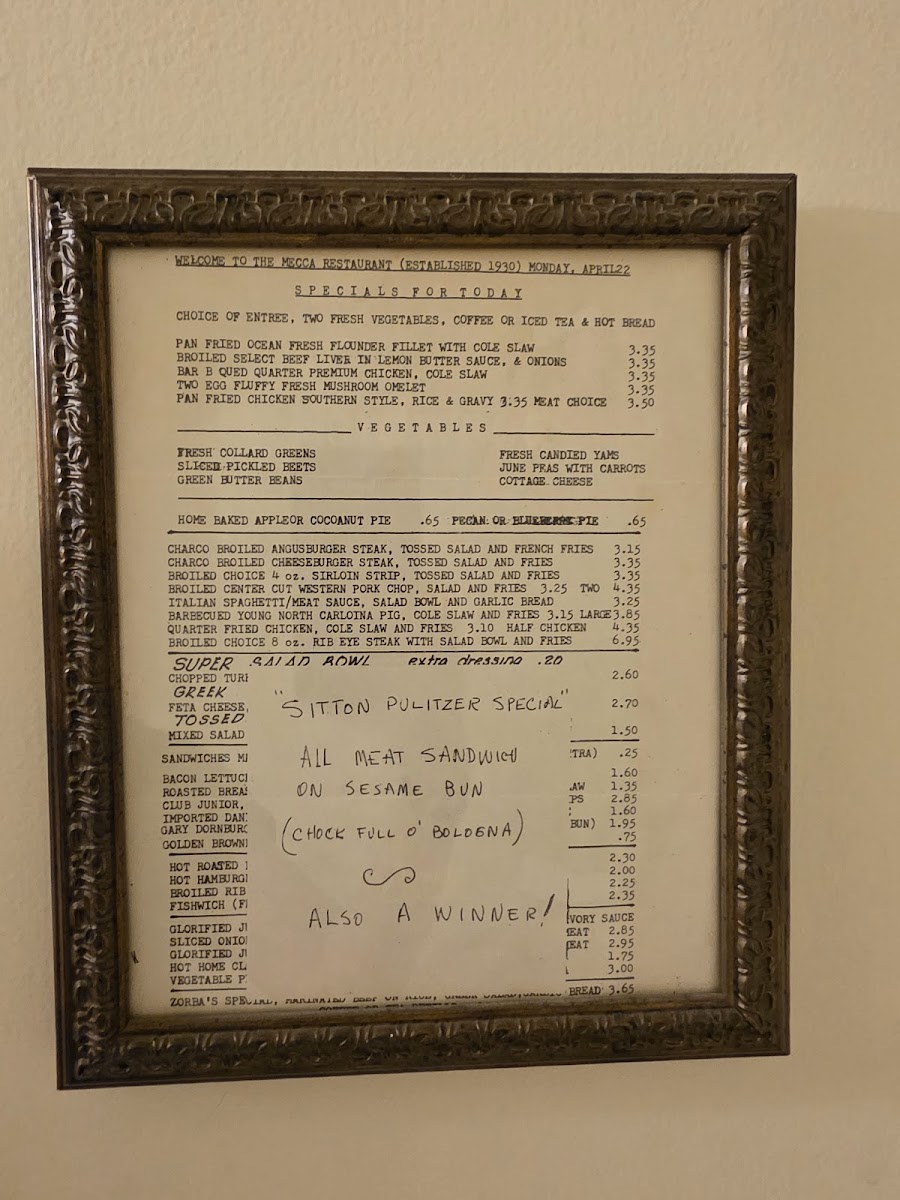 WELCOME TO THE MECCA RESTAURANT (ESTABLISHED 1930) MONDAY, APRIL22
SPECIALS FOR TODAY
CHOICE OF ENTREE, TWO FRESH VEGETABLES, COFFEE OR ICED TEA & HOT BREAD
PAN FRIED OCEAN FRESH FLOUNDER FILLET WITH COLE SLAW 3.35
BROILED SELECT BEEF LIVER IN LEMON BUTTER SAUCE, & ONIONS 3.35
BAR B QUED QUARTER PREMIUM CHICKEN, COLE SLAW 3.35
TWO EGG FLUFFY FRESH MUSHROOM OMELET 3.35
PAN FRIED CHICKEN SOUTHERN STYLE, RICE & GRAVY 3.35 MEAT CHOICE 3.50
VEGETABLES
FRESH COLLARD GREENS FRESH CANDIED YAMS
SLICED PICKLED BEETS JUNE PEAS WITH CARROTS
GREEN BUTTER BEANS COTTAGE CHEESE
HOME BAKED APPLEOR COCOANUT PIE .65 PECAN OR BLUEBERRY PIE .65
CHARCO BROILED ANGUSBURGER STEAK, TOSSED SALAD AND FRENCH FRIES 3.15
CHARCO BROILED CHEESEBURGER STEAK, TOSSED SALAD AND FRIES 3.35
BROILED CHOICE 4 oz. SIRLOIN STRIP, TOSSED SALAD AND FRIES 3.35
BROILED CENTER CUT WESTERN PORK CHOP, SALAD AND FRIES 3.25 TWO 4.35
ITALIAN SPAGHETTI/MEAT SAUCE, SALAD BOWL AND GARLIC BREAD 3.25
BARBECUED YOUNG NORTH CARLOINA PIG, COLE SLAW AND FRIES 3.15 LARGE 3.85
QUARTER FRIED CHICKEN, COLE SLAW AND FRIES 3.10 HALF CHICKEN 4.35
BROILED CHOICE 8 oz. RIB EYE STEAK WITH SALAD BOWL AND FRIES 6.95
SUPER SALAD BOWL extra dressing .20
CHOPPED TUR 2.60
GREEK
FETA CHEESE, 2.70
TOSSED
MIXED SALAD 1.50
SANDWICHES TRA) .25
BACON LETTUC 1.60
ROASTED BREA AW 1.35
CLUB JUNIOR, PS 2.85
IMPORTED DAN 1.60
GARY DORNBURG BUN) 1.95
GOLDEN BROWN .75
HOT ROASTED 2.30
HOT HAMBURG 2.00
BROILED RIB 2.25
FISHWICH (F 2.35
GLORIFIED J VORY SAUCE
SLICED ONIO EAT 2.85
GLORIFIED J EAT 2.95
HOT HOME CL 1.75
VEGETABLE P 3.00
ZORBA'S SPECIAL, MARINATED BEEF ON RICE, GREEK SALAD, GARLIC BREAD 3.65
"SITTON PULITZER SPECIAL"
ALL MEAT SANDWICH
ON SESAME BUN
(CHOCK FULL O' BOLOGNA)
ALSO A WINNER!